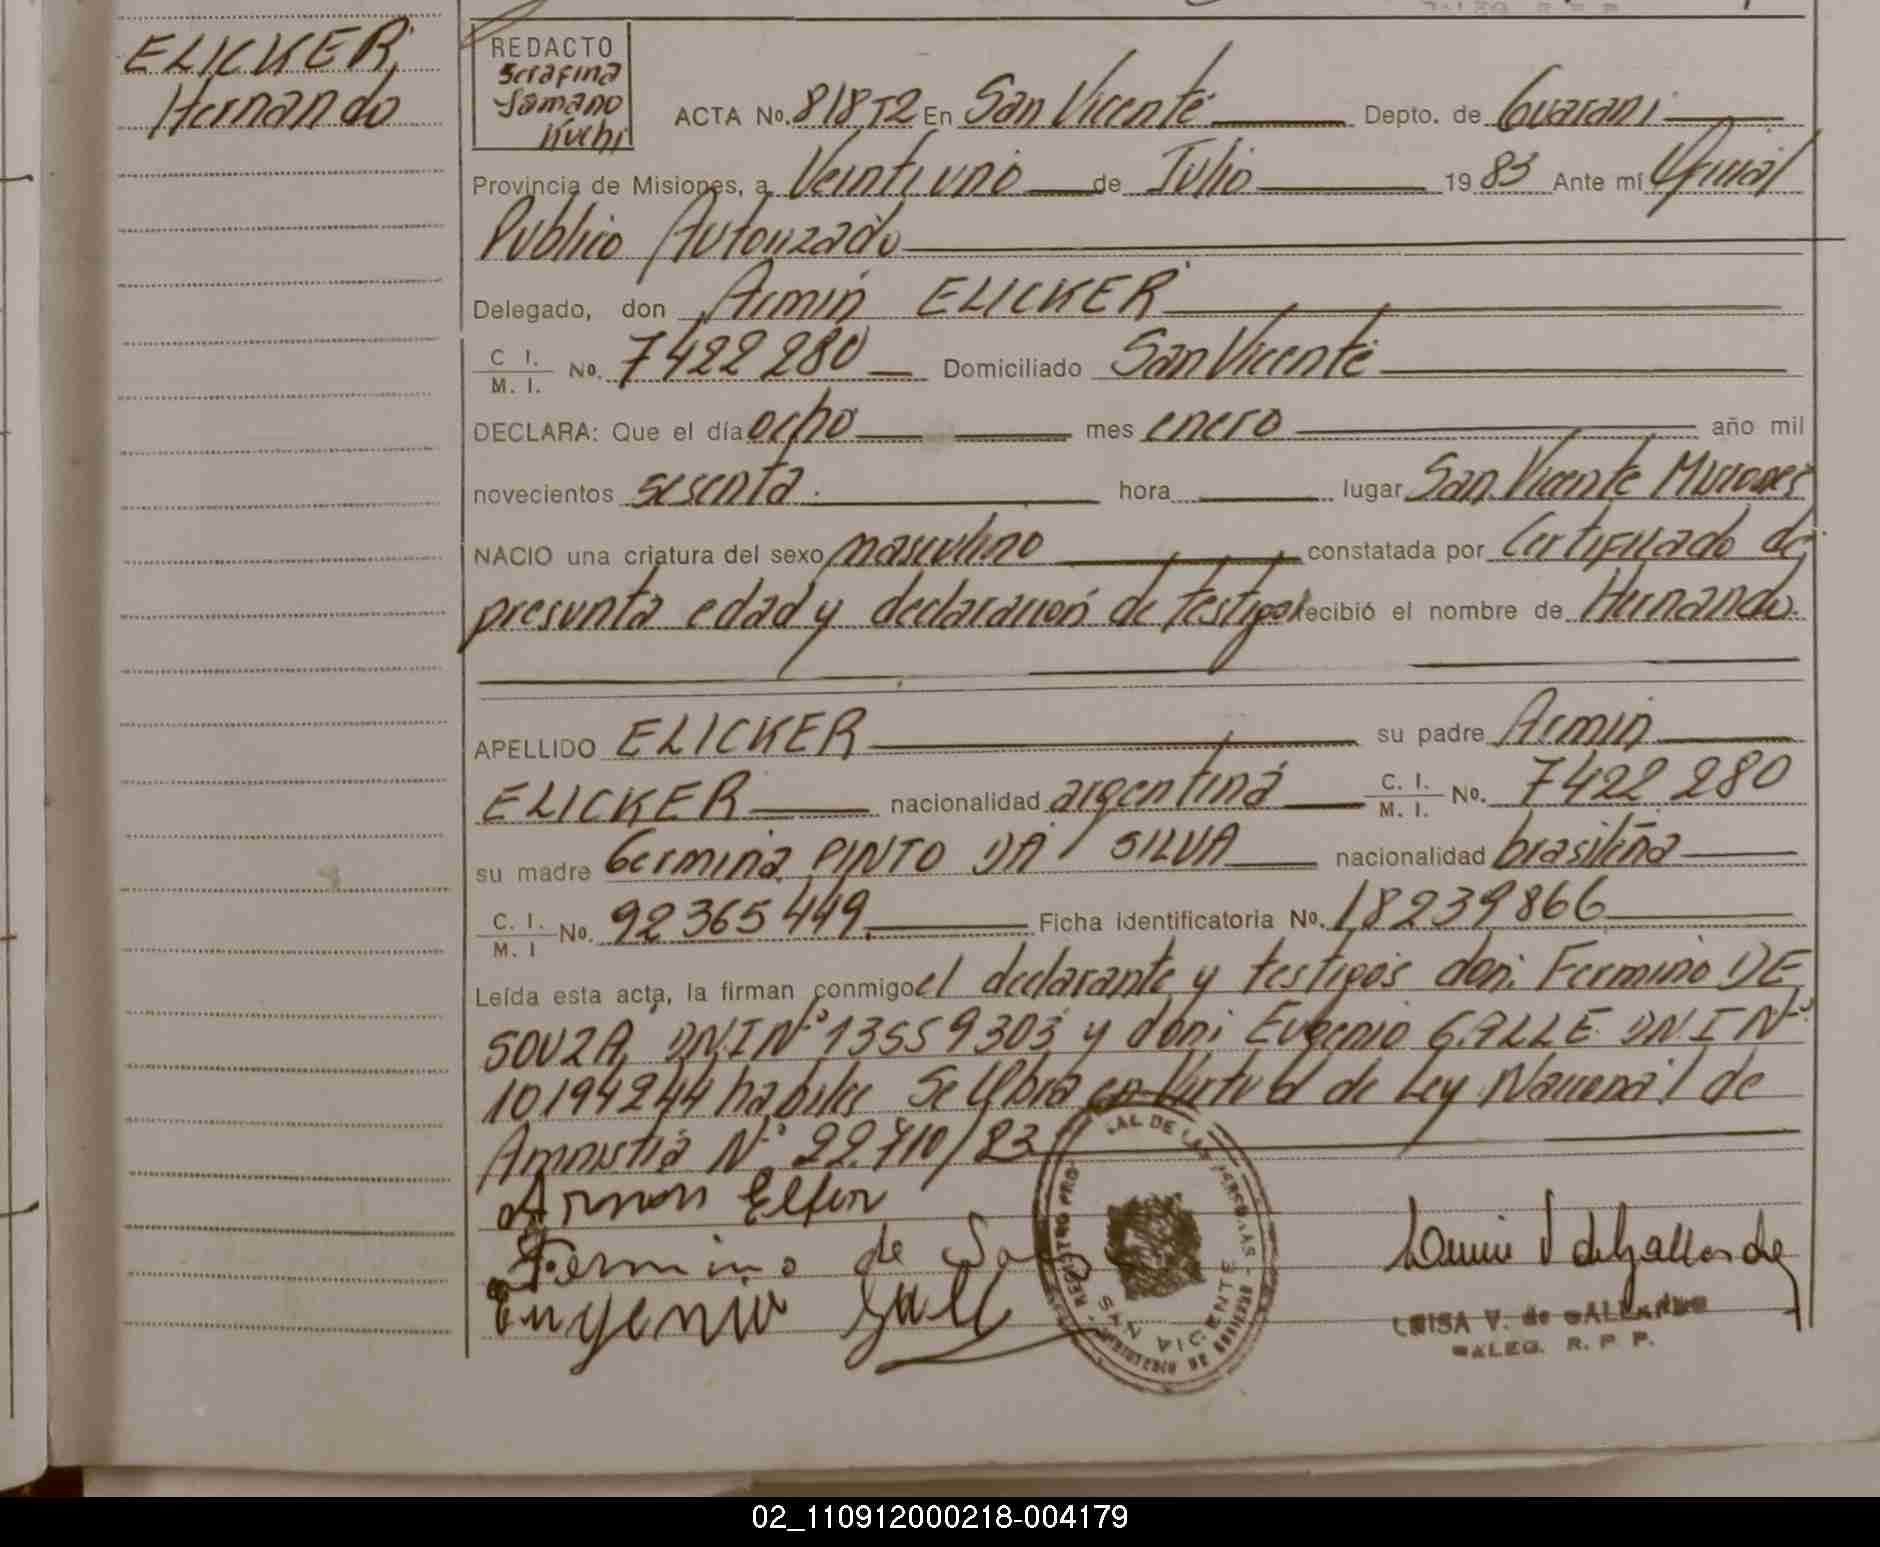 ELICKER,
Hernando
REDACTO
Serafina
Samano
Kuchi
ACTA No. 818 T2 En San Vicente Depto. de Guarani
Provincia de Misiones, a Veintiuno de Julio 19 83 Ante mí Oficial
Publico Autorizado
Delegado, don Armin ELICKER
C. I. / M. I. No. 7422 280 Domiciliado San Vicente
DECLARA: Que el día ocho mes enero año mil
novecientos sesenta. hora lugar San Vicente Misiones
NACIO una criatura del sexo masculino constatada por Certificado de
presunta edad y declaracion de testigos recibió el nombre de Hernando.
APELLIDO ELICKER su padre Armin
ELICKER nacionalidad argentina C. I. / M. I. No. 7422 280
su madre Germina PINTO DA SILVA nacionalidad brasileña
C. I. / M. I No. 92365449. Ficha identificatoria No. 18239866
Leída esta acta, la firman conmigo el declarante y testigos don: Fermino DE
SOUZA, DNI Nº 13559303 y don: Eugenio GALLE DNI Nº
10194244 habiles Se labra en Virtud de Ley Nacional de
Amnistia Nº 22.710/83
Fermino de
Eugenio Gall
REGISTRO PRO AL DE LAS PERSONAS
SAN VICENTE
MINISTERIO DE GOBIERNO
LUISA V. de GALLARDO
R. P. P.
02_110912000218-004179